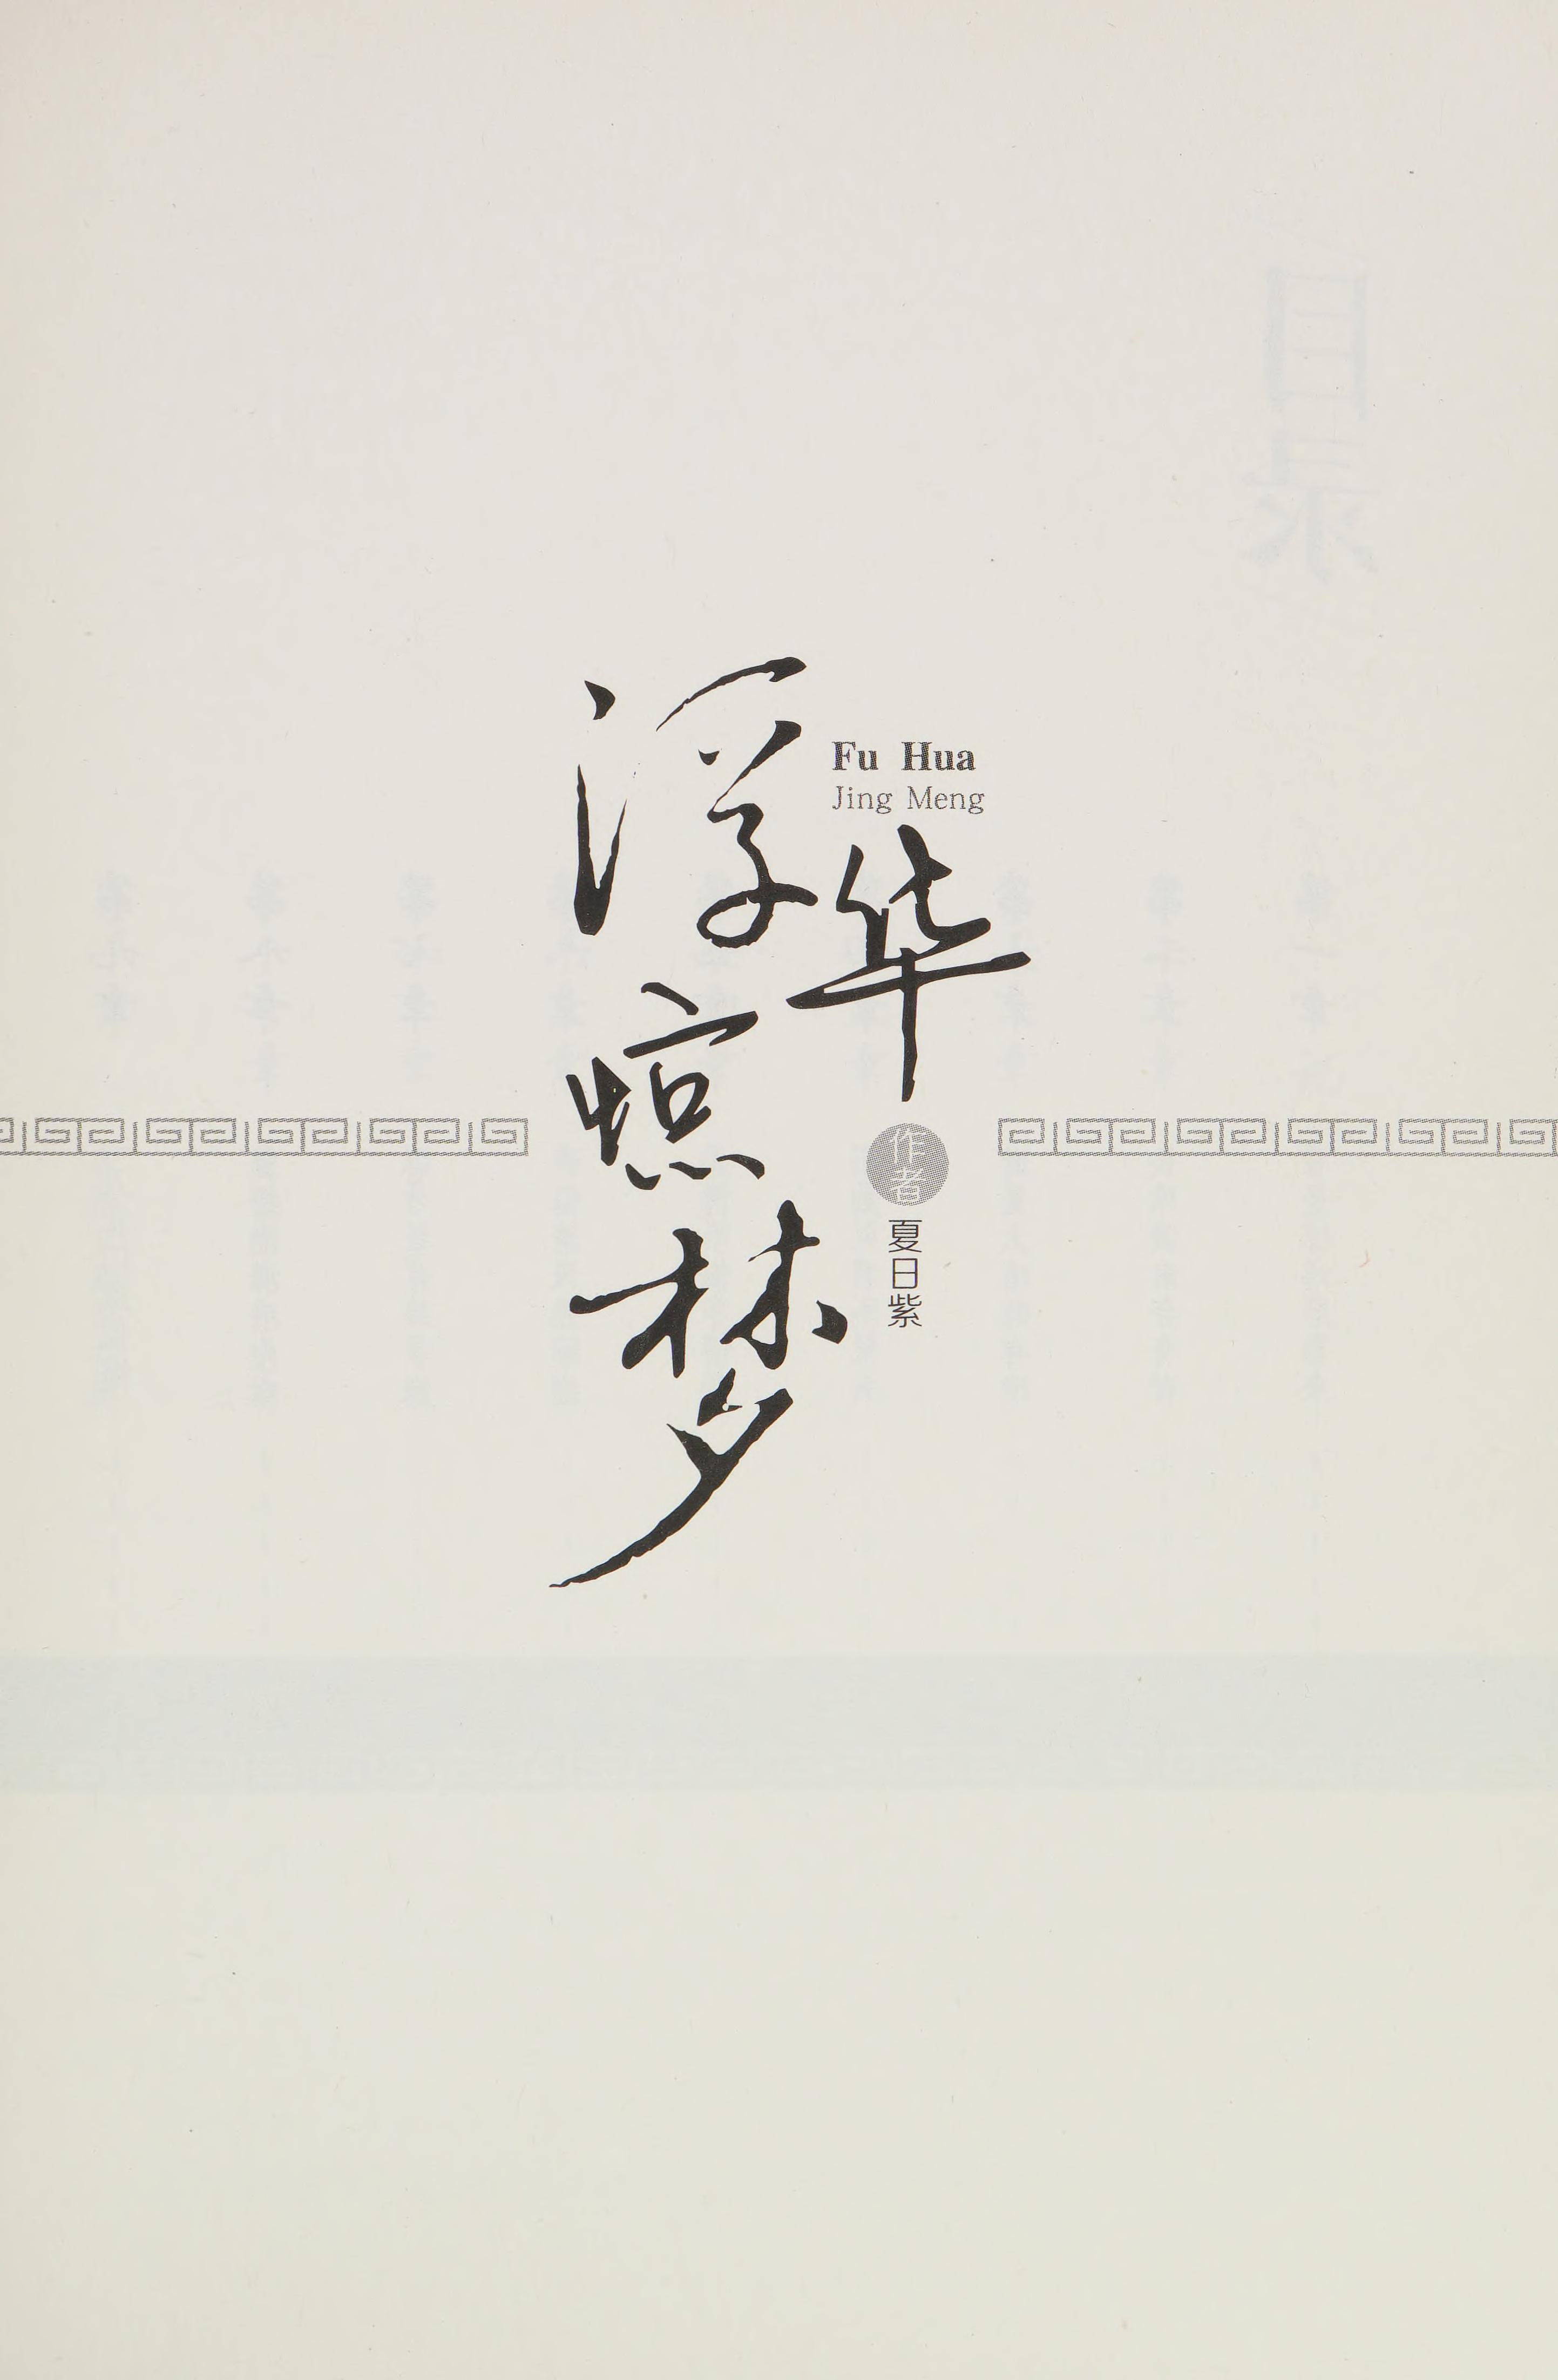 浮华
惊梦
Fu Hua
Jing Meng
作者
夏日紫